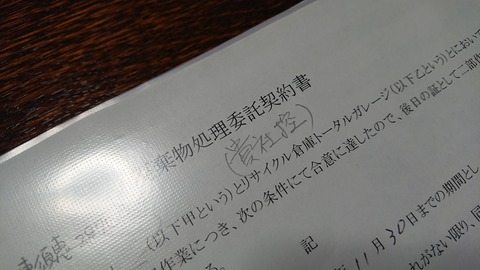 棄物処理委託契約書
(貴社控)
(以下甲という)とリサイクル倉庫トータルガレージ(以下乙という)とにおいて
作業につき、次の条件にて合意に達したので、後日の証として二部作
記
11月30日までの期間とし
れがない限り、同